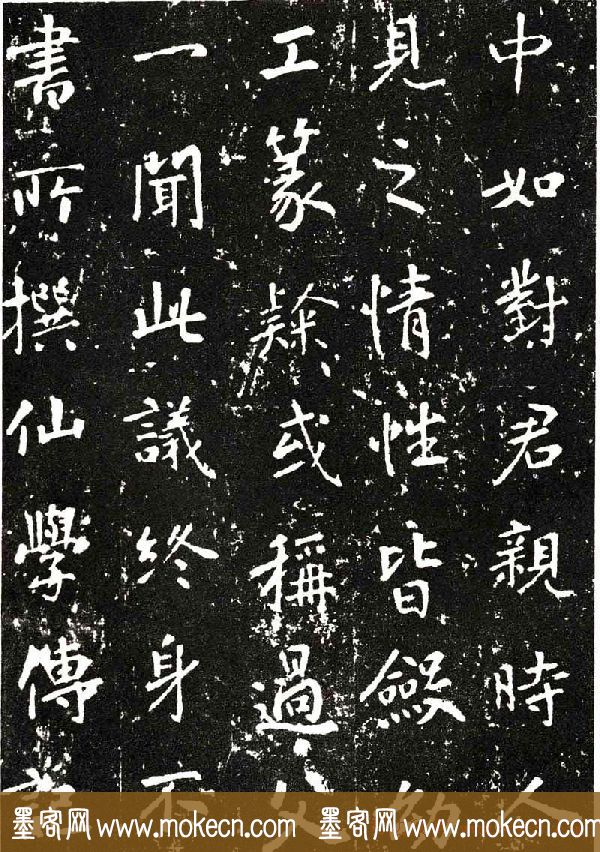 中如對君親時人
見之情性皆斂幼
工篆隸或稱過父
一聞此議終身不
書所撰仙學傳
墨客网 www.mokecn.com 墨客网 www.mokecn.com